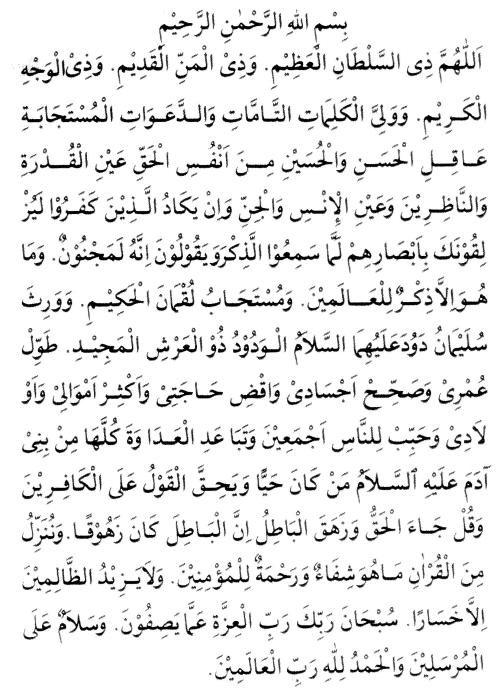 بِسْمِ اللهِ الرَّحْمٰنِ الرَّحِيْمِ
اَللّٰهُمَّ ذِى السَّلْطَانِ الْعَظِيْمِ. وَذِىْ الْمَنِّ الْقَدِيْمِ. وَذِىْ الْوَجْهِ
الْكَرِيْمِ. وَوَلِىَّ الْكَلِمَاتِ التَّامَّاتِ وَالدَّعَوَاتِ الْمُسْتَجَابَةِ
عَاقِلِ الْحَسَنِ وَالْحُسَيْنِ مِنَ اَنْفُسِ الْحَقِّ عَيْنِ الْقُدْرَةِ
وَالنَّاظِرِيْنَ وَعَيْنِ الْإِنْسِ وَالْجِنِّ وَاِنْ يَكَادُ الَّذِيْنَ كَفَرُوْا لَيُزْ
لِقُوْنَكَ بِاَبْصَارِهِمْ لَمَّا سَمِعُوْا الذِّكْرَ وَيَقُوْلُوْنَ اِنَّهُ لَمَجْنُوْنٌ. وَمَا
هُوَ اِلاَّ ذِكْرٌ لِلْعَالَمِيْنَ. وَمُسْتَجَابُ لُقْمَانَ الْحَكِيْمِ. وَوَرِثَ
سُلَيْمَانُ دَوُدَ عَلَيْهِمَا السَّلاَمُ الْوَدُوْدُ ذُو الْعَرْشِ الْمَجِيْدِ. طَوِّلْ
عُمْرِىْ وَصَحِّحْ اَجْسَادِىْ وَاقْضِ حَاجَتِىْ وَاَكْثِرْ اَمْوَالِىْ وَاَوْ
لَادِىْ وَحَبِّبْ لِلنَّاسِ اَجْمَعِيْنَ وَتَبَاعَدِ الْعَدَاوَةَ كُلَّهَا مِنْ بَنِىْ
آدَمَ عَلَيْهِ السَّلاَمُ مَنْ كَانَ حَيًّا وَيَحِقَّ الْقَوْلُ عَلَى الْكَافِرِيْنَ
وَقُلْ جَاءَ الْحَقُّ وَزَهَقَ الْبَاطِلُ اِنَّ الْبَاطِلَ كَانَ زَهُوْقًا. وَنُنَزِّلُ
مِنَ الْقُرْاٰنِ مَاهُوَ شِفَاءٌ وَرَحْمَةٌ لِلْمُؤْمِنِيْنَ. وَلاَ يَزِيْدُ الظَّالِمِيْنَ
اِلاَّ خَسَارًا. سُبْحَانَ رَبِّكَ رَبِّ الْعِزَّةِ عَمَّا يَصِفُوْنَ. وَسَلاَمٌ عَلَى
الْمُرْسَلِيْنَ وَالْحَمْدُ لِلّٰهِ رَبِّ الْعَالَمِيْنَ.